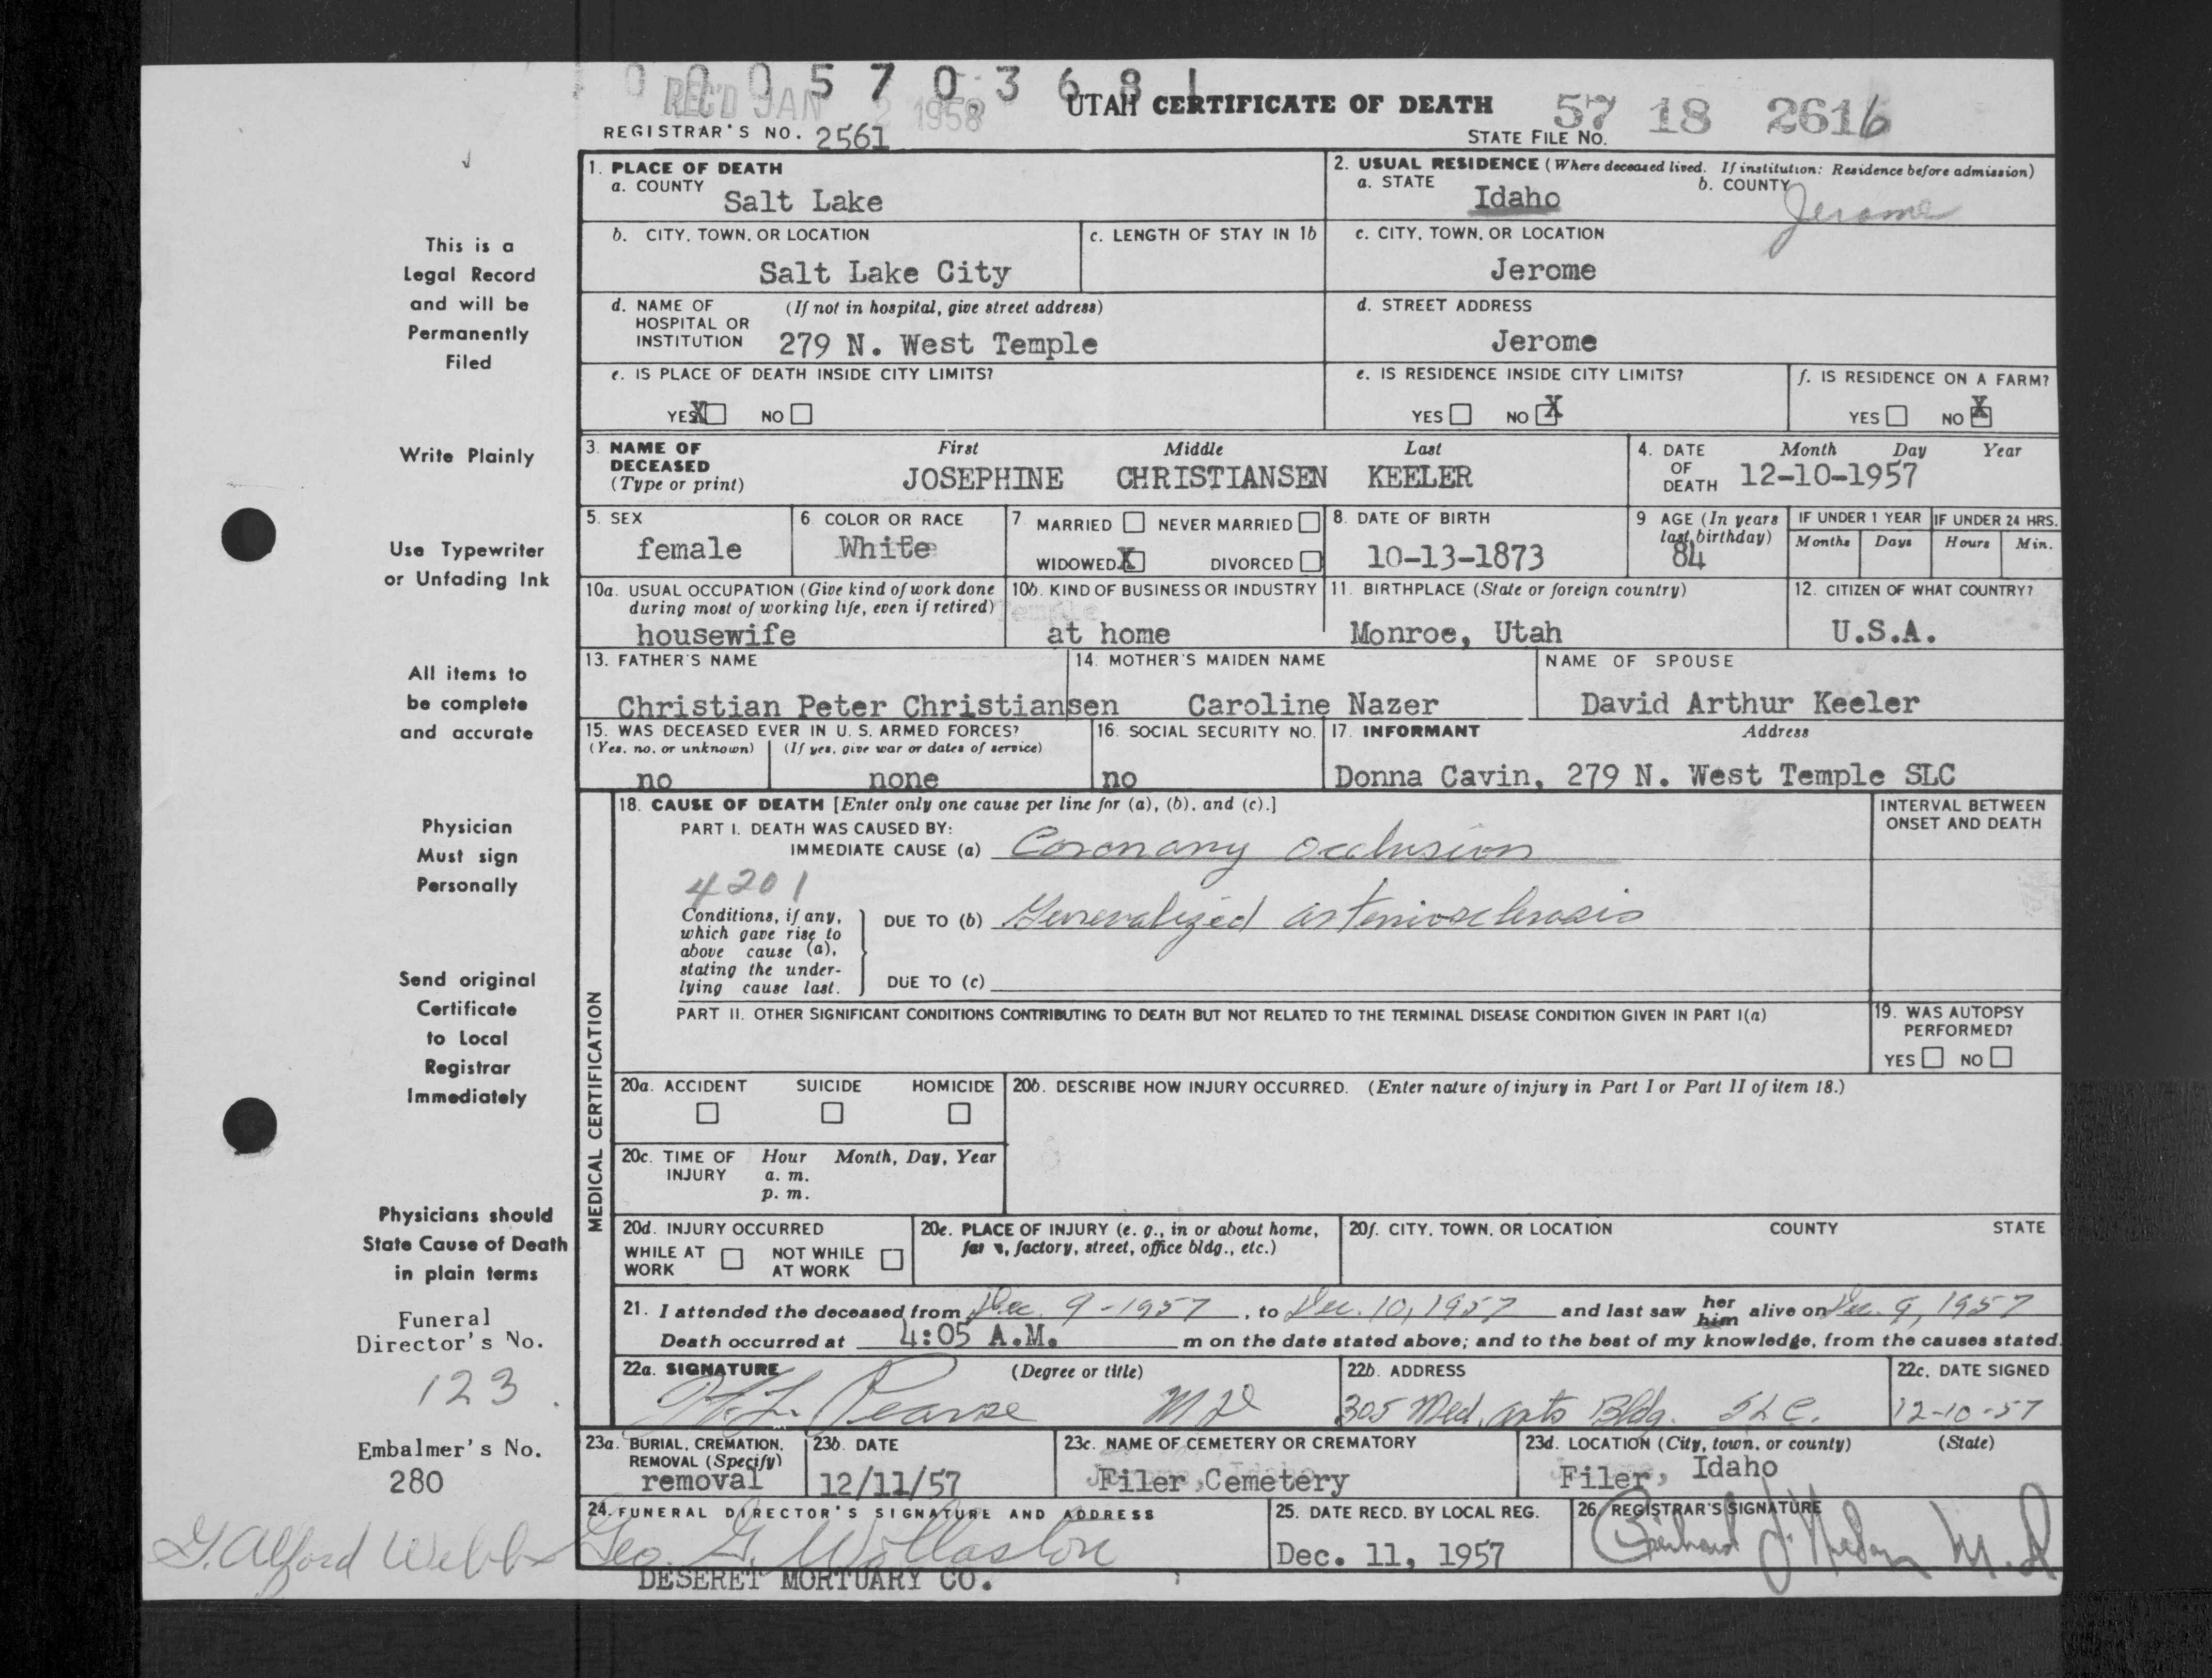 0005703681
REC'D JAN 2 1958
UTAH CERTIFICATE OF DEATH
57 18 2616
REGISTRAR'S NO. 2561
STATE FILE NO.
1. PLACE OF DEATH
a. COUNTY
Salt Lake
2. USUAL RESIDENCE (Where deceased lived. If institution: Residence before admission)
a. STATE Idaho b. COUNTY Jerome
b. CITY, TOWN, OR LOCATION
Salt Lake City
c. LENGTH OF STAY IN 1b
c. CITY, TOWN, OR LOCATION
Jerome
d. NAME OF HOSPITAL OR INSTITUTION (If not in hospital, give street address)
279 N. West Temple
d. STREET ADDRESS
Jerome
e. IS PLACE OF DEATH INSIDE CITY LIMITS?
YES X NO
e. IS RESIDENCE INSIDE CITY LIMITS?
YES NO X
f. IS RESIDENCE ON A FARM?
YES NO X
3. NAME OF DECEASED (Type or print)
First Middle Last
JOSEPHINE CHRISTIANSEN KEELER
4. DATE OF DEATH
Month Day Year
12-10-1957
5. SEX
female
6. COLOR OR RACE
White
7. MARRIED NEVER MARRIED
WIDOWED X DIVORCED
8. DATE OF BIRTH
10-13-1873
9. AGE (In years last birthday)
84
IF UNDER 1 YEAR
Months Days
IF UNDER 24 HRS.
Hours Min.
10a. USUAL OCCUPATION (Give kind of work done during most of working life, even if retired)
housewife
10b. KIND OF BUSINESS OR INDUSTRY
Temple
at home
11. BIRTHPLACE (State or foreign country)
Monroe, Utah
12. CITIZEN OF WHAT COUNTRY?
U.S.A.
13. FATHER'S NAME
Christian Peter Christiansen
14. MOTHER'S MAIDEN NAME
Caroline Nazer
NAME OF SPOUSE
David Arthur Keeler
15. WAS DECEASED EVER IN U. S. ARMED FORCES?
(Yes, no, or unknown) (If yes, give war or dates of service)
no none
16. SOCIAL SECURITY NO.
no
17. INFORMANT Address
Donna Cavin, 279 N. West Temple SLC
MEDICAL CERTIFICATION
18. CAUSE OF DEATH [Enter only one cause per line for (a), (b), and (c).]
PART I. DEATH WAS CAUSED BY:
IMMEDIATE CAUSE (a) Coronary occlusion
4201
Conditions, if any, which gave rise to above cause (a), stating the under-lying cause last.
DUE TO (b) Generalized arteriosclerosis
DUE TO (c)
INTERVAL BETWEEN ONSET AND DEATH
PART II. OTHER SIGNIFICANT CONDITIONS CONTRIBUTING TO DEATH BUT NOT RELATED TO THE TERMINAL DISEASE CONDITION GIVEN IN PART I(a)
19. WAS AUTOPSY PERFORMED?
YES NO
20a. ACCIDENT SUICIDE HOMICIDE
20b. DESCRIBE HOW INJURY OCCURRED. (Enter nature of injury in Part I or Part II of item 18.)
20c. TIME OF INJURY
Hour Month, Day, Year
a. m.
p. m.
20d. INJURY OCCURRED
WHILE AT WORK NOT WHILE AT WORK
20e. PLACE OF INJURY (e. g., in or about home, farm, factory, street, office bldg., etc.)
20f. CITY, TOWN, OR LOCATION COUNTY STATE
21. I attended the deceased from Dec. 9-1957, to Dec. 10, 1957 and last saw her him alive on Dec. 9, 1957
Death occurred at 4:05 A.M. m on the date stated above; and to the best of my knowledge, from the causes stated.
22a. SIGNATURE (Degree or title)
Pearse MD
22b. ADDRESS
305 Med. arts Bldg. SLC.
22c. DATE SIGNED
12-10-57
23a. BURIAL, CREMATION, REMOVAL (Specify)
removal
23b. DATE
12/11/57
23c. NAME OF CEMETERY OR CREMATORY
Filer Cemetery
23d. LOCATION (City, town, or county) (State)
Filer, Idaho
24. FUNERAL DIRECTOR'S SIGNATURE AND ADDRESS
Geo. G. Wollaston
DESERET MORTUARY CO.
25. DATE RECD. BY LOCAL REG.
Dec. 11, 1957
26. REGISTRAR'S SIGNATURE
M.D
This is a
Legal Record
and will be
Permanently
Filed
Write Plainly
Use Typewriter
or Unfading Ink
All items to
be complete
and accurate
Physician
Must sign
Personally
Send original
Certificate
to Local
Registrar
Immediately
Physicians should
State Cause of Death
in plain terms
Funeral
Director's No.
123
Embalmer's No.
280
G. Alford Webb